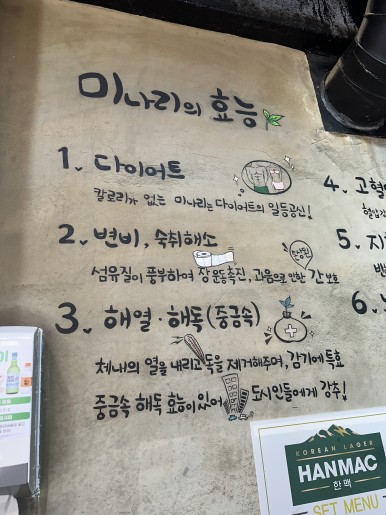 미나리의 효능
1. 다이어트
칼로리가 없는 미나리는 다이어트의 일등공신!
2. 변비, 숙취해소
섬유질이 풍부하여 장운동촉진, 과음으로 인한 간 보호
3. 해열·해독(중금속)
체내의 열을 내리고 독을 제거해주며, 감기에 특효
중금속 해독 효능이 있어 도시인들에게 강추!
4. 고혈
혈압
5. 지
6.
KOREAN LAGER
HANMAC
한맥
SET MENU